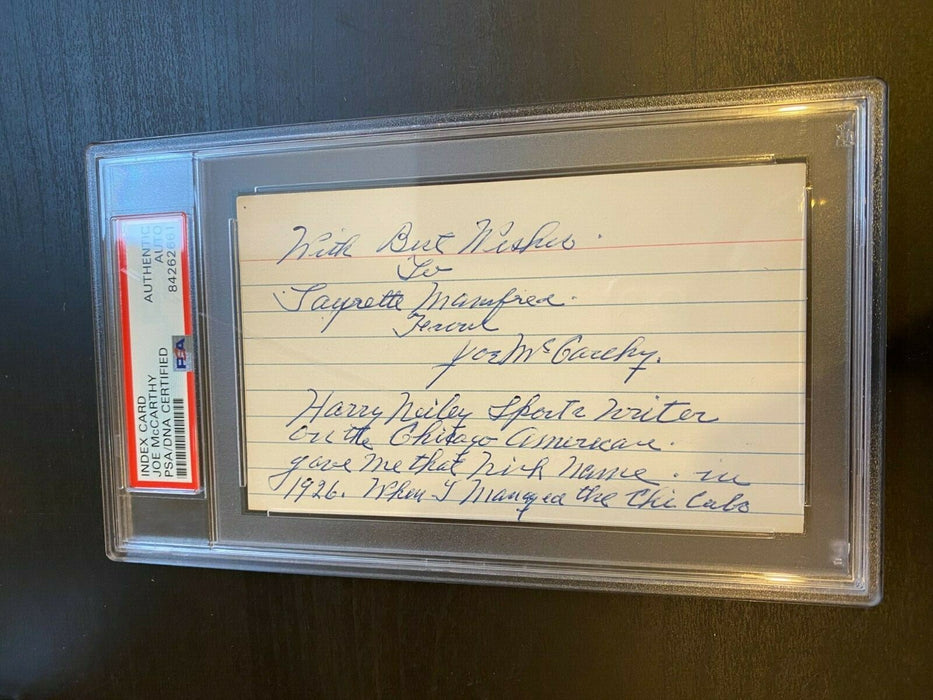 INDEX CARD
JOE McCARTHY
PSA/DNA CERTIFIED
AUTHENTIC
AUTO
84262661
PSA
With Best Wishes.
To
Manfred.
From
Joe McCarthy.
Harry Neiley Sports Writer
on the Chicago American.
gave me that Nick Name. in
1926. When I Managed the Chi Cubs